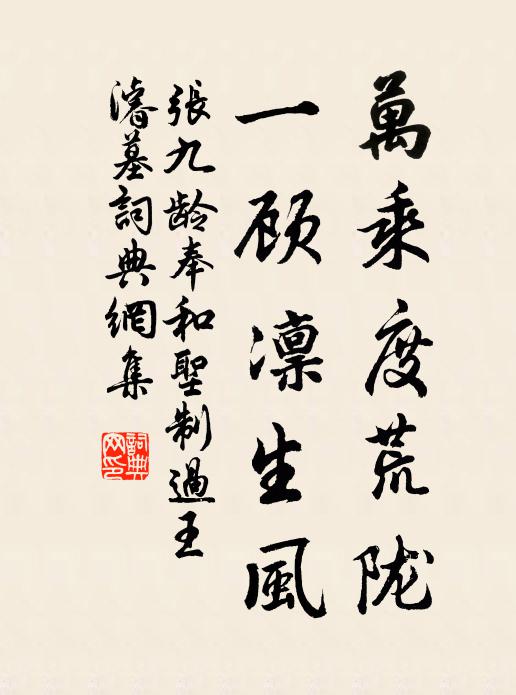 萬乘度荒陇
一顾凛生風
張九龄奉和聖制過王
濬墓詞典網集
詞典网印